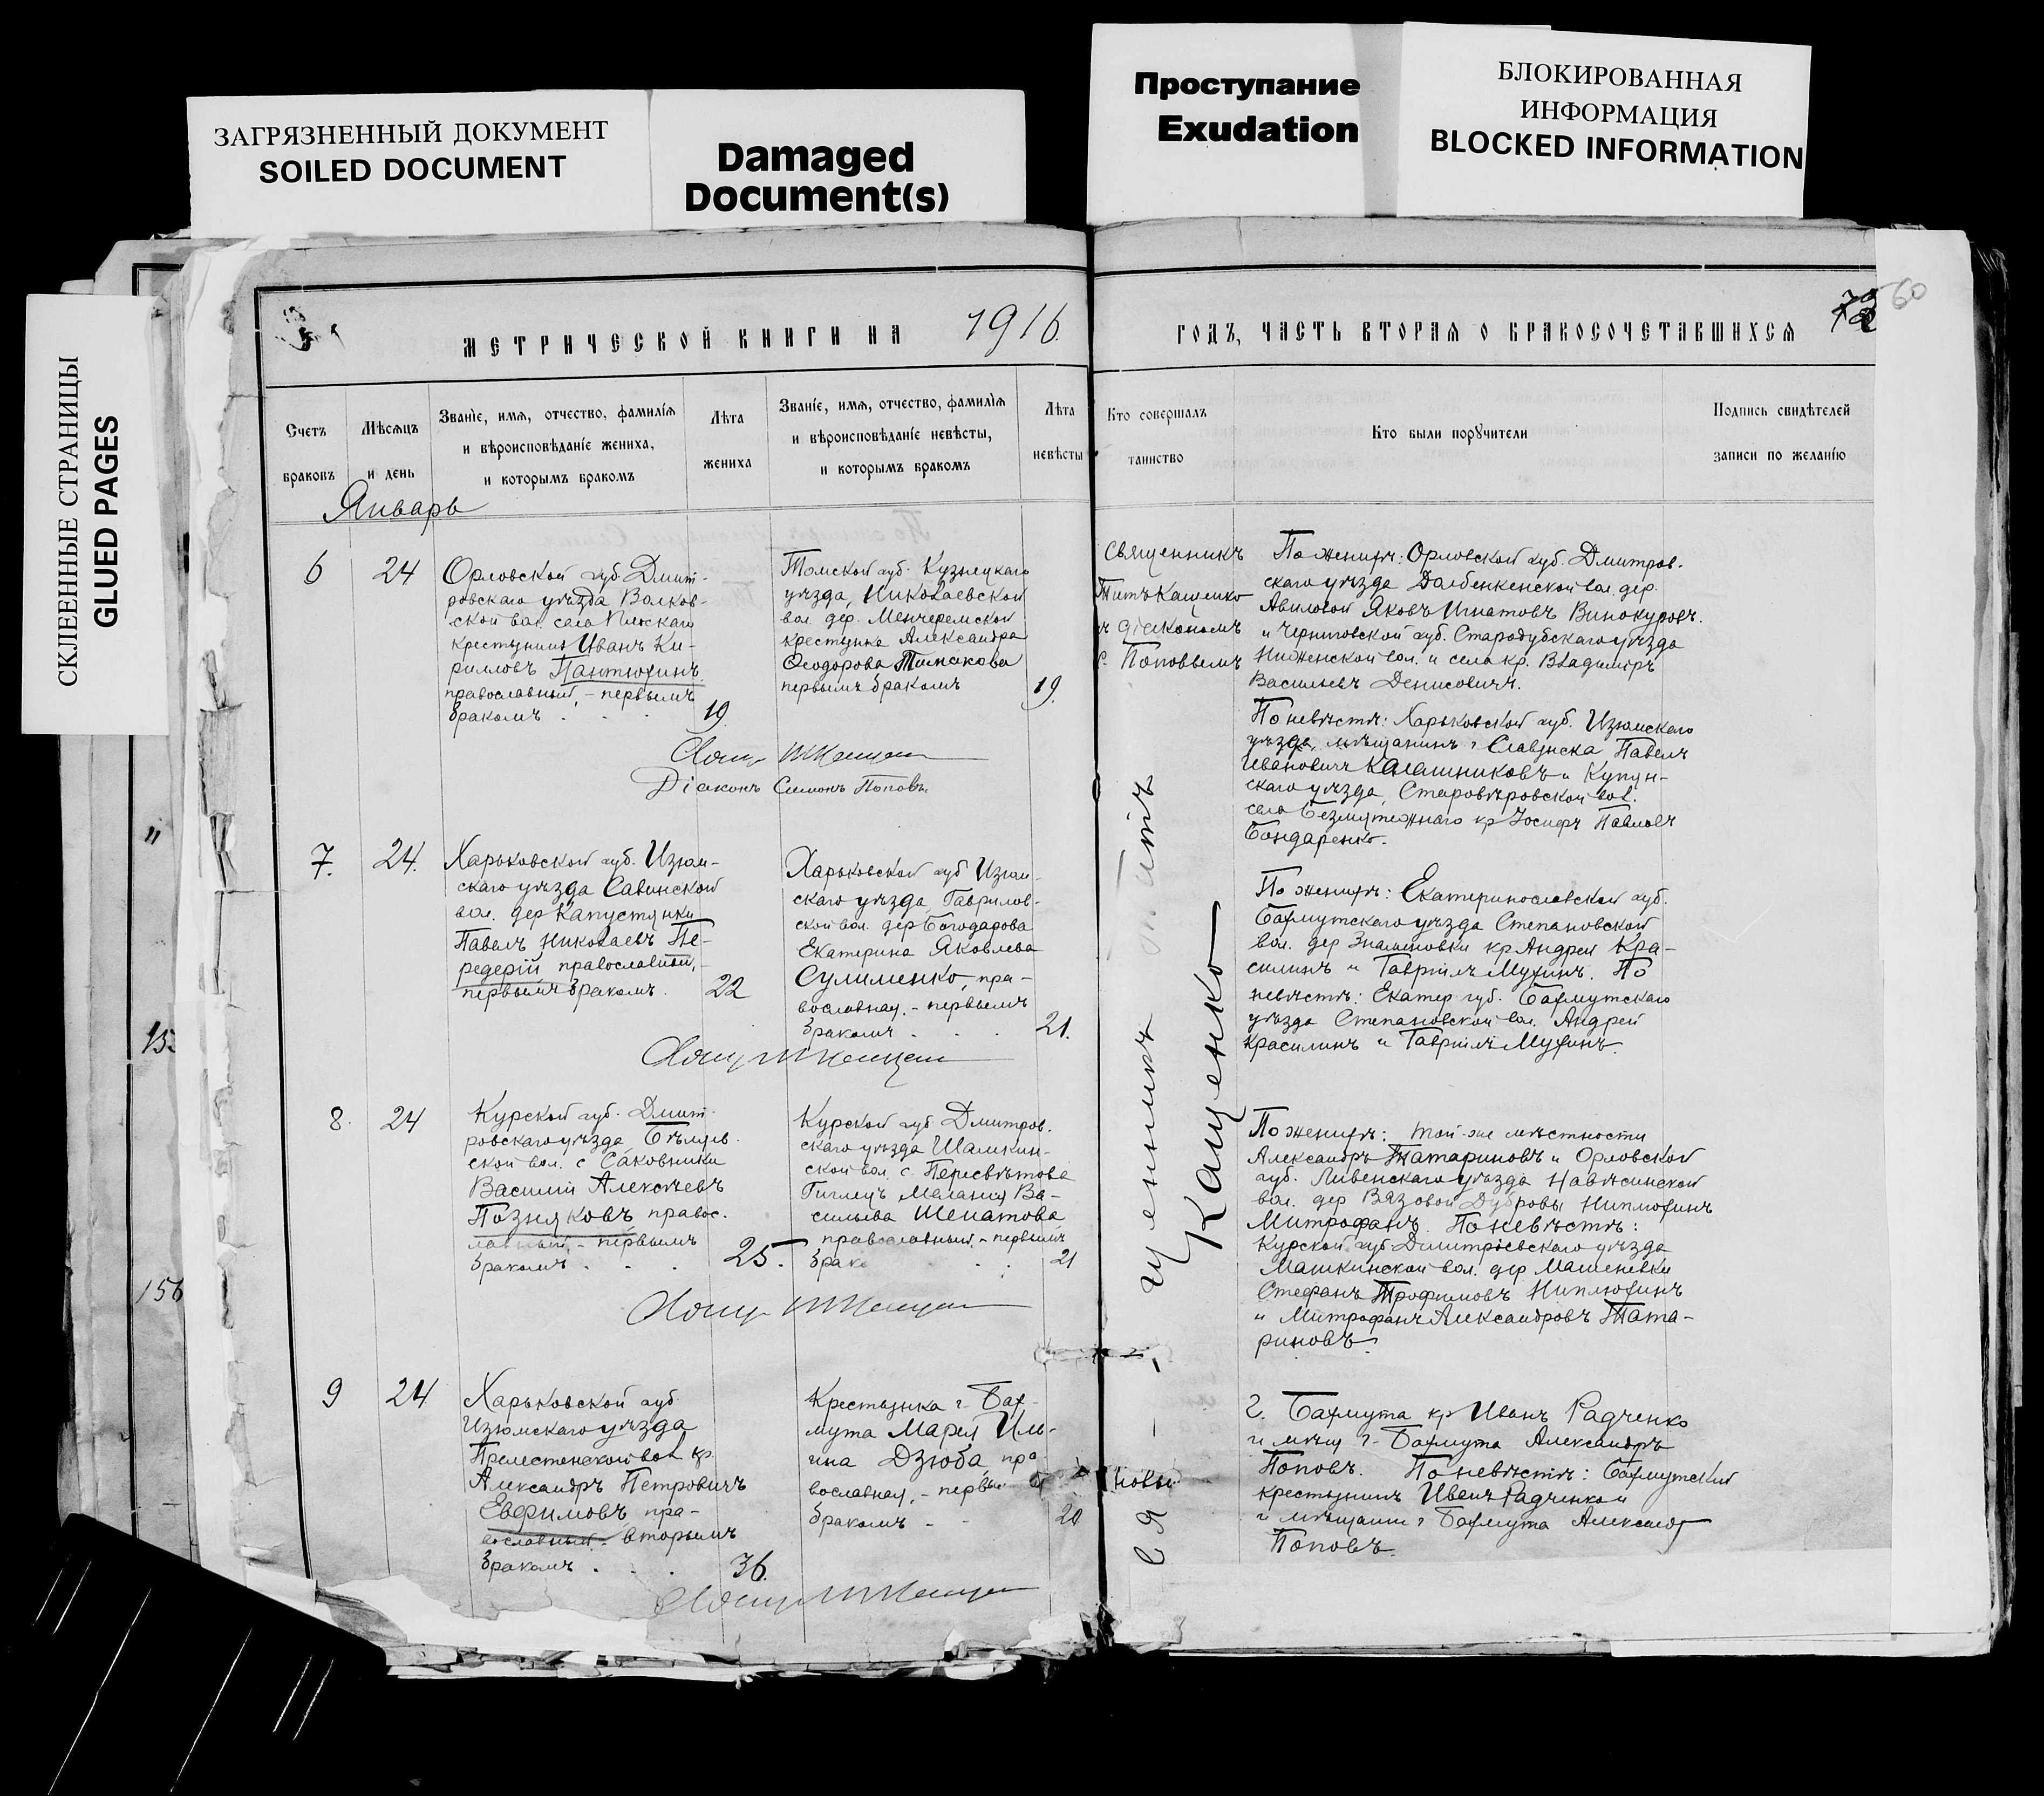 ЗАГРЯЗНЕННЫЙ ДОКУМЕНТ
SOILED DOCUMENT
Damaged
Document(s)
Проступание
Exudation
БЛОКИРОВАННАЯ
ИНФОРМАЦИЯ
BLOCKED INFORMATION
СКЛЕЕННЫЕ СТРАНИЦЫ
GLUED PAGES
МЕТРИЧЕСКОЙ КНИГИ НА 1916
ГОДЪ, ЧАСТЬ ВТОРАЯ О БРАКОСОЧЕТАВШИХСЯ
60
Счетъ
браковъ
Мѣсяцъ
и день
Званіе, имя, отчество, фамилія
и вѣроисповѣданіе жениха,
и которымъ бракомъ
Лѣта
жениха
Званіе, имя, отчество, фамилія
и вѣроисповѣданіе невѣсты,
и которымъ бракомъ
Лѣта
невѣсты
Кто совершалъ
таинство
Кто были поручители
Подпись свидѣтелей
записи по желанію
Январь
6
24
Орловской губ. Дмит-
ровскаго уѣзда Волков-
ской вол. села Плоскаго
крестьянинъ Иванъ Ки-
рилловъ Пантюхинъ
православный, - первымъ
бракомъ
19.
Томской губ. Кузнецкаго
уѣзда, Николаевской
вол. дер. Менчеремской
крестьянка Александра
Ѳеодорова Тимакова
первымъ бракомъ
19.
Діаконъ Симонъ Поповъ.
Священникъ
Титъ Кащенко
и діакономъ
С. Поповымъ
По женихѣ: Орловской губ. Дмитров-
скаго уѣзда Долбенкенской вол. дер.
Авиловой Яковъ Игнатовъ Винокуровъ.
и Черниговской губ. Стародубскаго уѣзда
вол. и села кр. Владиміръ
Васильевъ Денисовичъ.
По невѣстѣ: Харьковской губ. Изюмскаго
уѣзда, мѣщанинъ г. Славянска Павелъ
Ивановичъ Калашниковъ и Купян-
скаго уѣзда, Старовѣровской вол.
села Безмятежнаго кр Іосифъ Павловъ
Бондаренко.
7.
24.
Харьковской губ. Изюм-
скаго уѣзда Савинской
вол. дер Капустянки
Павелъ Николаевъ Пе-
редерій православный, -
первымъ бракомъ.
22
Харьковской губ Изюм-
скаго уѣзда, Гаврилов-
ской вол. дер Богодарова
Екатерина Яковлева
Сулименко, пра-
вославная, - первымъ
бракомъ
21.
По женихѣ: Екатеринославской губ.
Бахмутскаго уѣзда Степановской
вол. дер Знаменовки кр Андрей Кра-
силинъ и Гавріилъ Мухинъ. По
невѣстѣ: Екатер. губ. Бахмутскаго
уѣзда Степановской вол. Андрей
Красилинъ и Гавріилъ Мухинъ.
8.
24
Курской губ. Дмит-
ровскаго уѣзда
ской вол. с Саковники
Василій Алексѣевъ
Позняковъ правос-
лавный, - первымъ
бракомъ
25.
Курской губ Дмитров-
скаго уѣзда
ской вол. с. Пересвѣтова
Маланія Ва-
сильева
православный, - первымъ
брако
21
По женихѣ: той-же мѣстности
Александръ Татариновъ и Орловской
губ. Ливенскаго уѣзда Навѣсинской
вол. дер Вязовой Дубровы Ниплюхинъ
Митрофанъ. По невѣстѣ:
Курской губ Димитріевскаго уѣзда
Машкинской вол. дер Машеневки
Стефанъ Трофимовъ Ниплюхинъ
и Митрофанъ Александровъ Тата-
риновъ.
9
24
Харьковской губ
Изюмскаго уѣзда
вол кр.
Александръ Петровичъ
Евфимовъ, пра-
вославный - вторымъ
бракомъ
36.
Крестьянка г. Бах-
мута Марія Иль-
ина Дзюба, пра-
вославная, - первым
бракомъ
20
г. Бахмута кр Иванъ Радченко
и мѣщ г. Бахмута Александръ
Поповъ. По невѣстѣ: Бахмутскій
крестьянинъ Иванъ Радченко
и мѣщанин г Бахмута Александ
Поповъ.
Кащенко